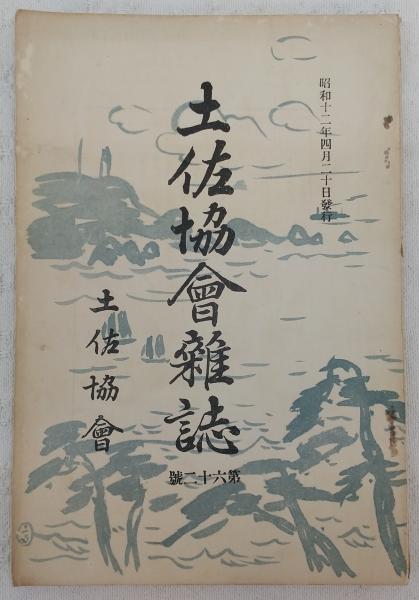 昭和十二年四月二十日發行
土佐協會雜誌
土佐協會
第六十二號